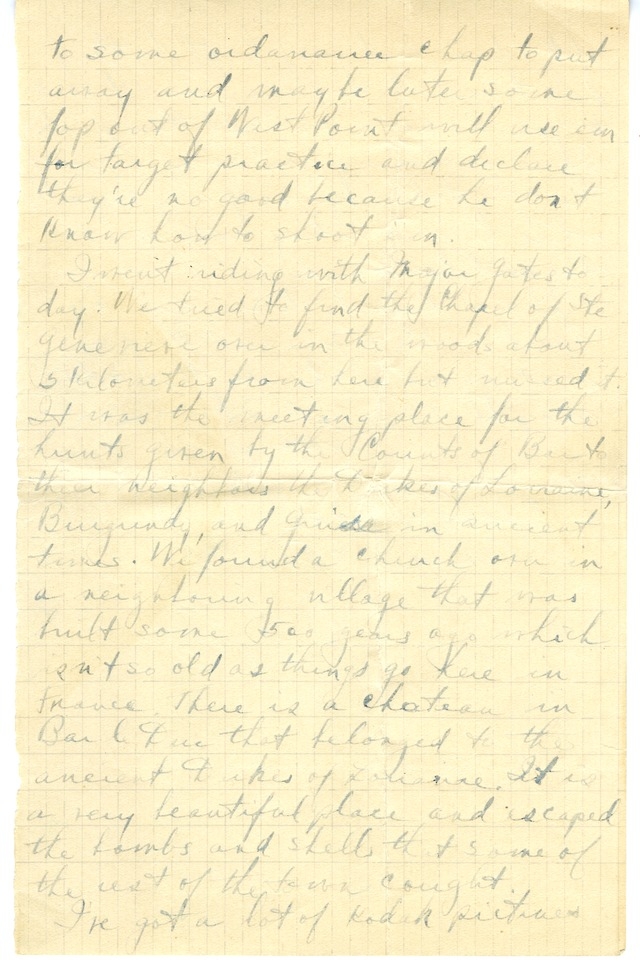 to some ordanance chap to put
away and maybe later some
fop out of West Point will use em
for target practice and declare
they're no good because he don't
know how to shoot em.
I went riding with Major Gates to
day. We tried to find the Chapel of Ste
Genevieve over in the woods about
5 Kilometers from here but missed it.
It was the meeting place for the
hunts given by the Counts of Bar to
their neighbors the Dukes of Lorraine,
Burgundy, and Guise in ancient
times. We found a church over in
a neighboring village that was
built some 500 years ago which
isn't so old as things go here in
France. There is a chateau in
Bar le Duc that belonged to the
ancient Dukes of Loraine. It is
a very beautiful place and escaped
the bombs and shells that some of
the rest of the town caught.
I've got a lot of Kodak pictures